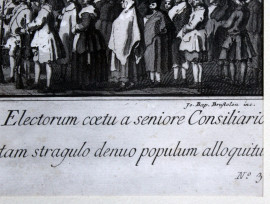 Jo. Bap. Brustolon inc.
Electorum cœtu a seniore Consiliario
tam stragulo denuo populum alloquitu
Nº 3